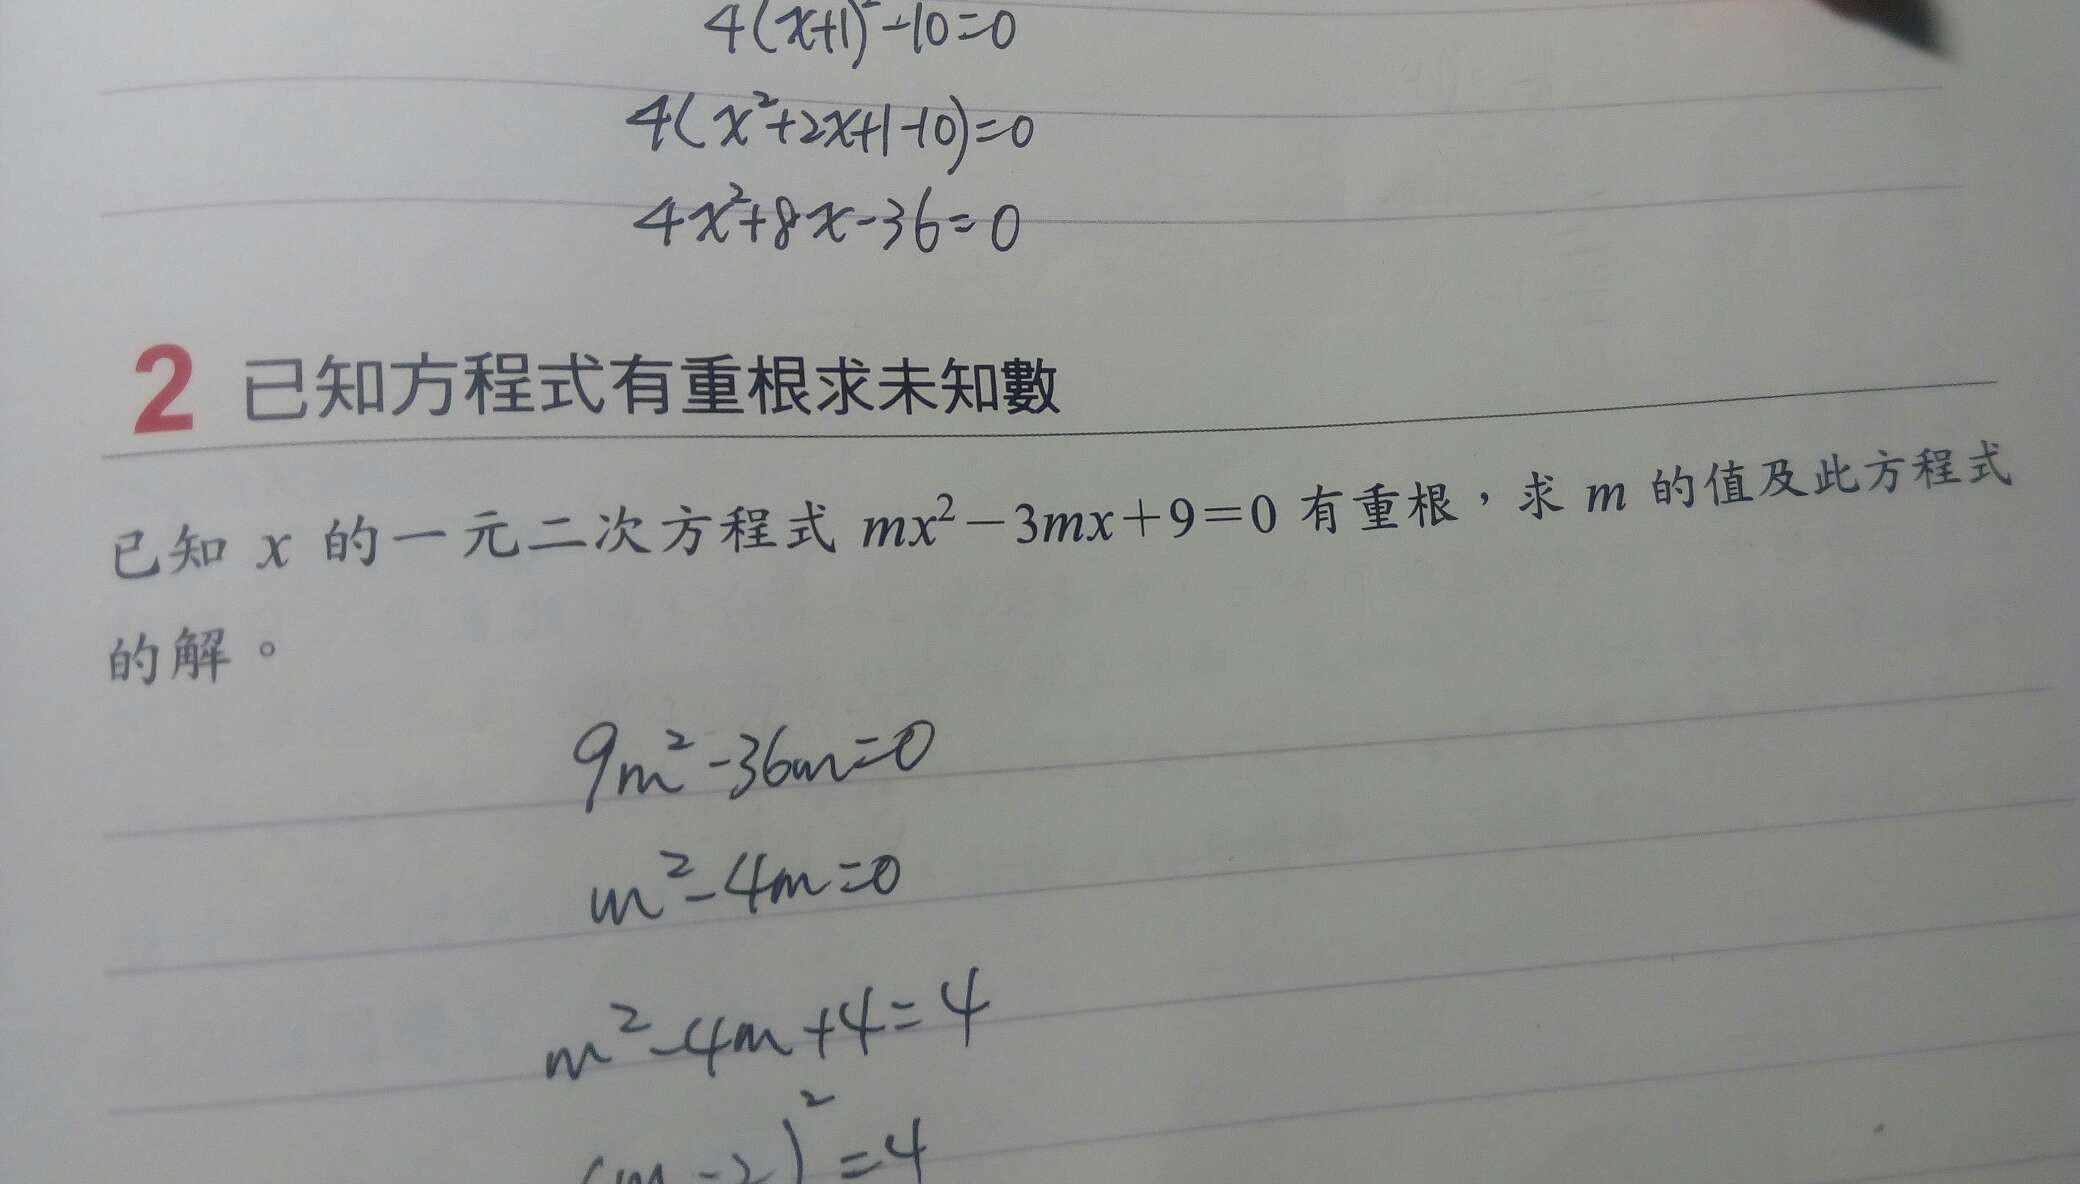 4(x+1)²-10=0
4(x²+2x+1-10)=0
4x²+8x-36=0
2 已知方程式有重根求未知數
已知 x 的一元二次方程式 mx²－3mx＋9＝0 有重根，求 m 的值及此方程式
的解。
9m²-36m=0
m²-4m=0
m²-4m+4=4
(m-2)²=4